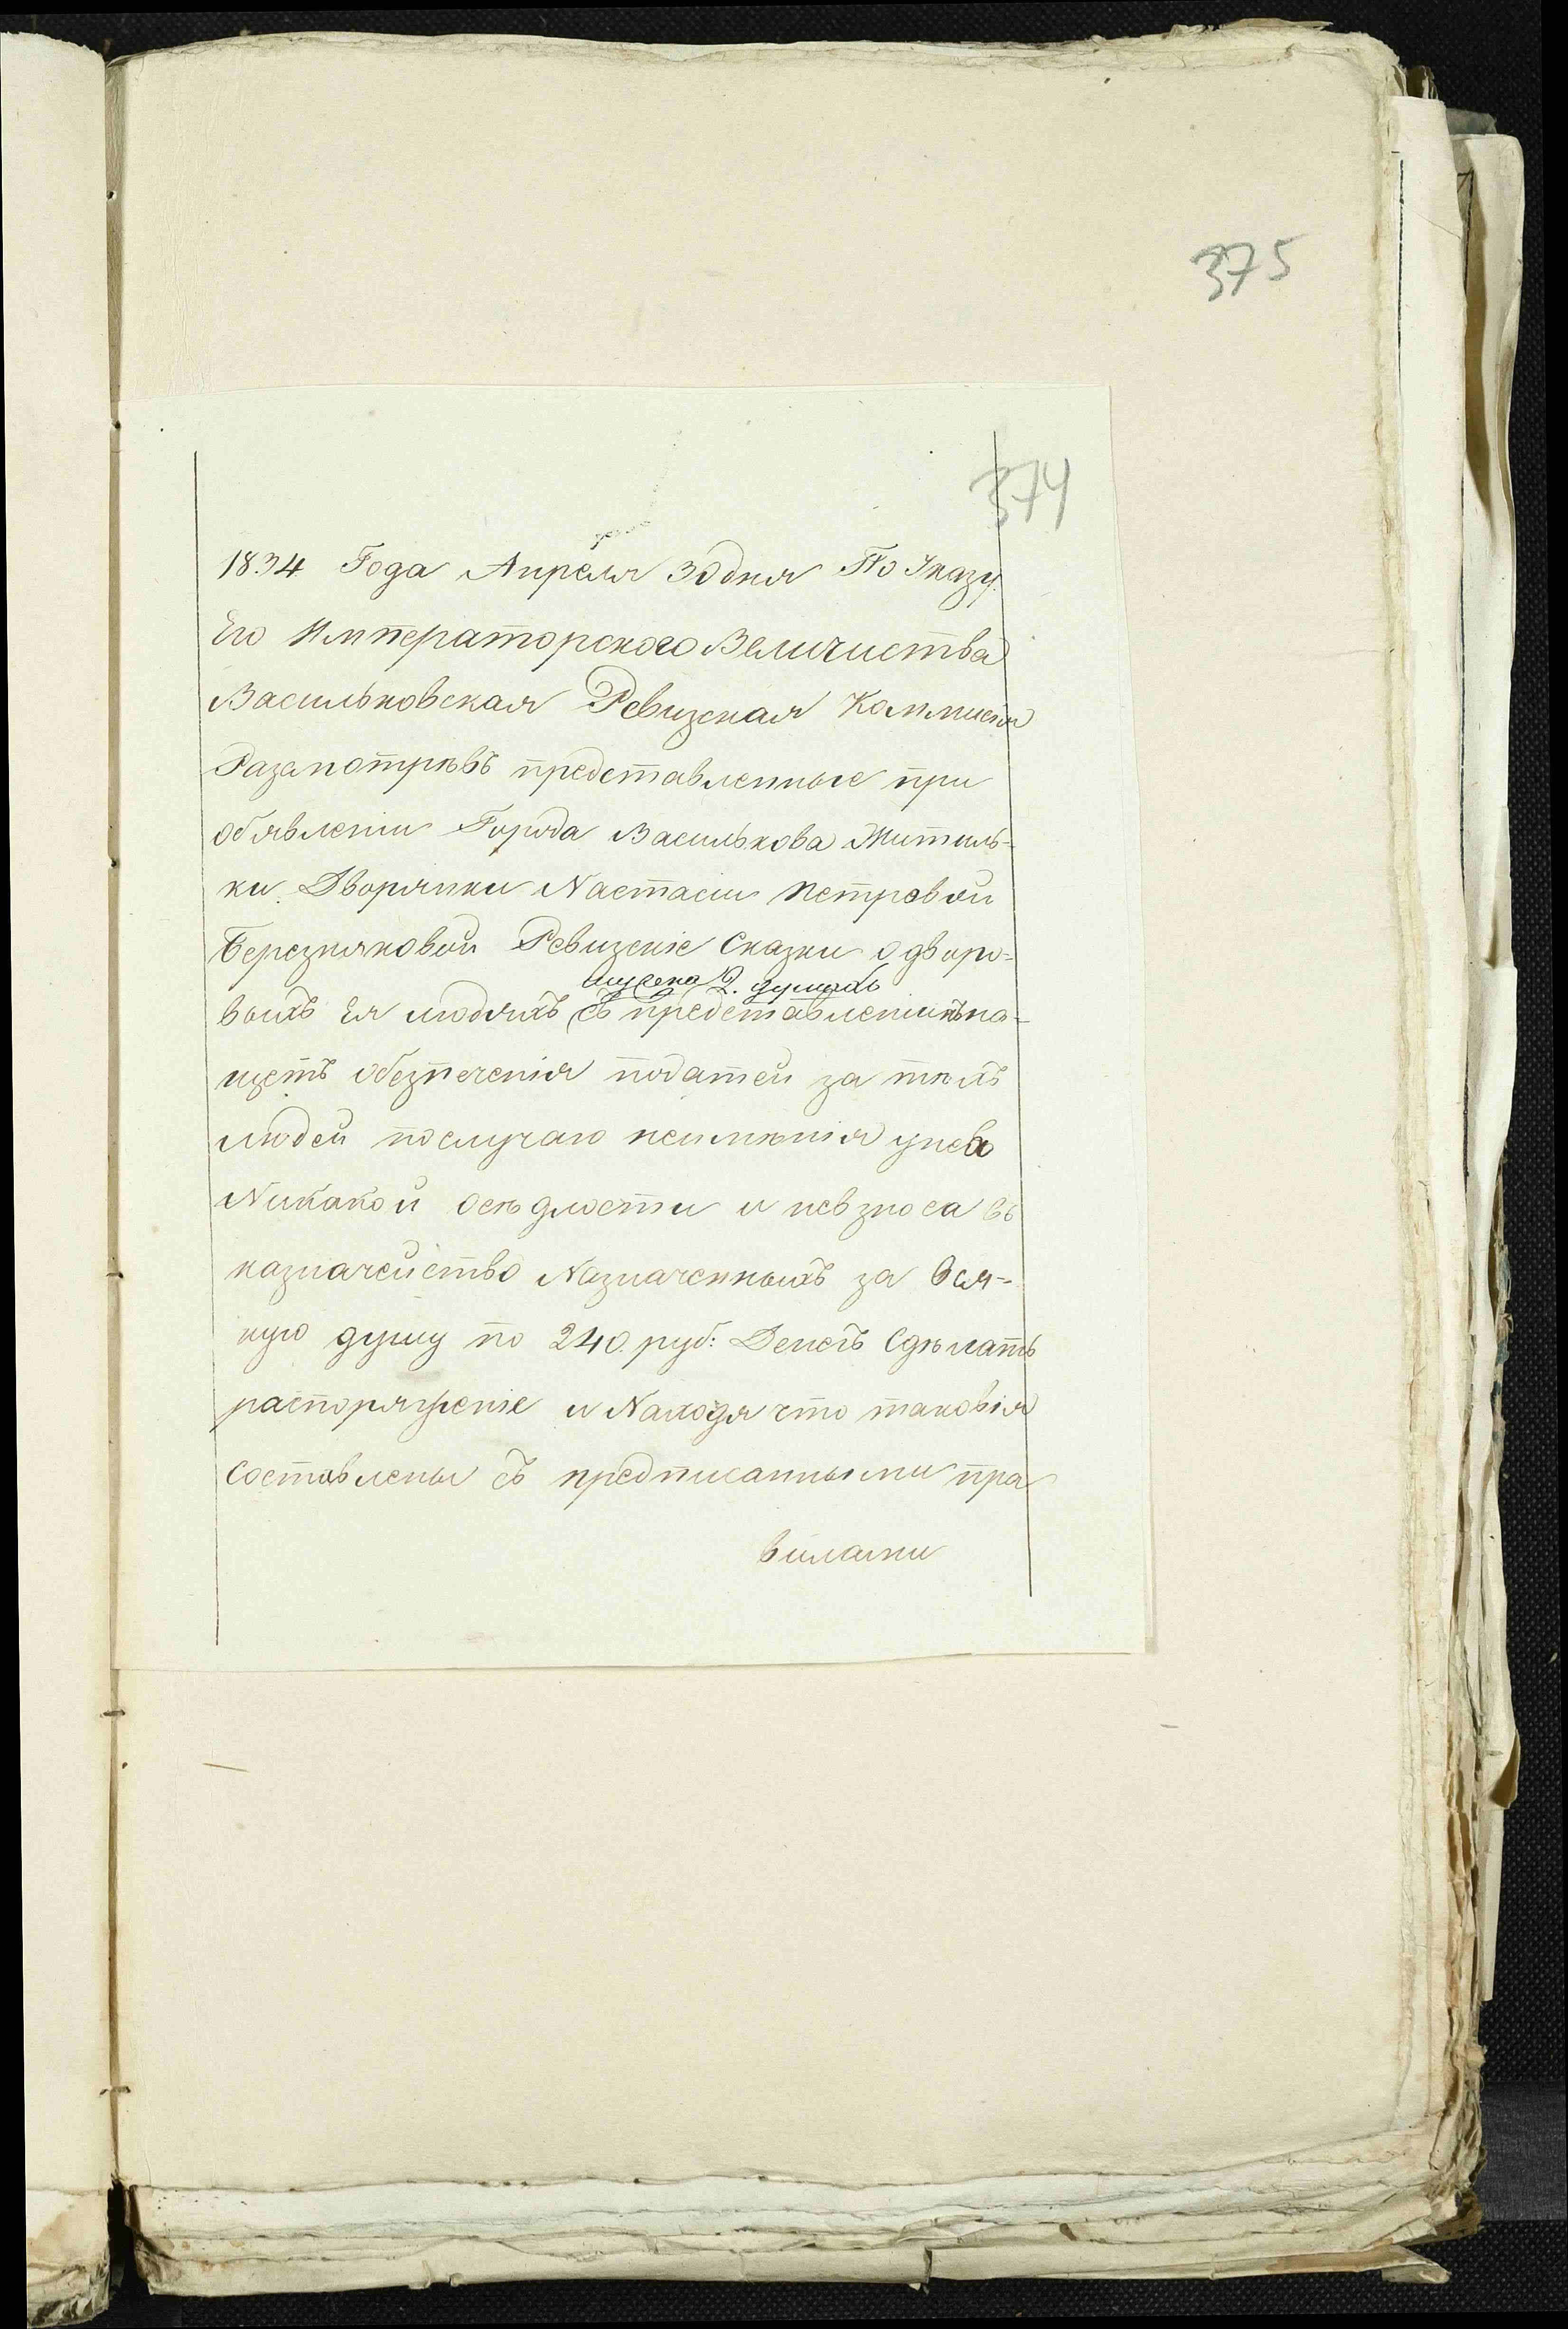 375
374
1834 Года Апреля 30 дня По Указу
Его Императорского Величиства
Васильковская Ревизская Коммисія
Разсмотрѣвъ представленные при
обявленіи Города Василькова Житель-
ки Дворянки Настасіи Петровой
Березняковой Ревизскіе Сказки о дворо-
муж: пола 2. душахъ
выхъ Ея людяхъ съ представленіемъ на-
щетъ обезпеченія податей за тѣхъ
людей послучаю неимѣнія унея
Никакой осѣдлости и невзноса въ
казначейство Назначенныхъ за вся-
кую душу по 240. руб: Денегъ Сдѣлать
распоряженіе и Находя что таковія
Составлены съ предписанными пра
вилами